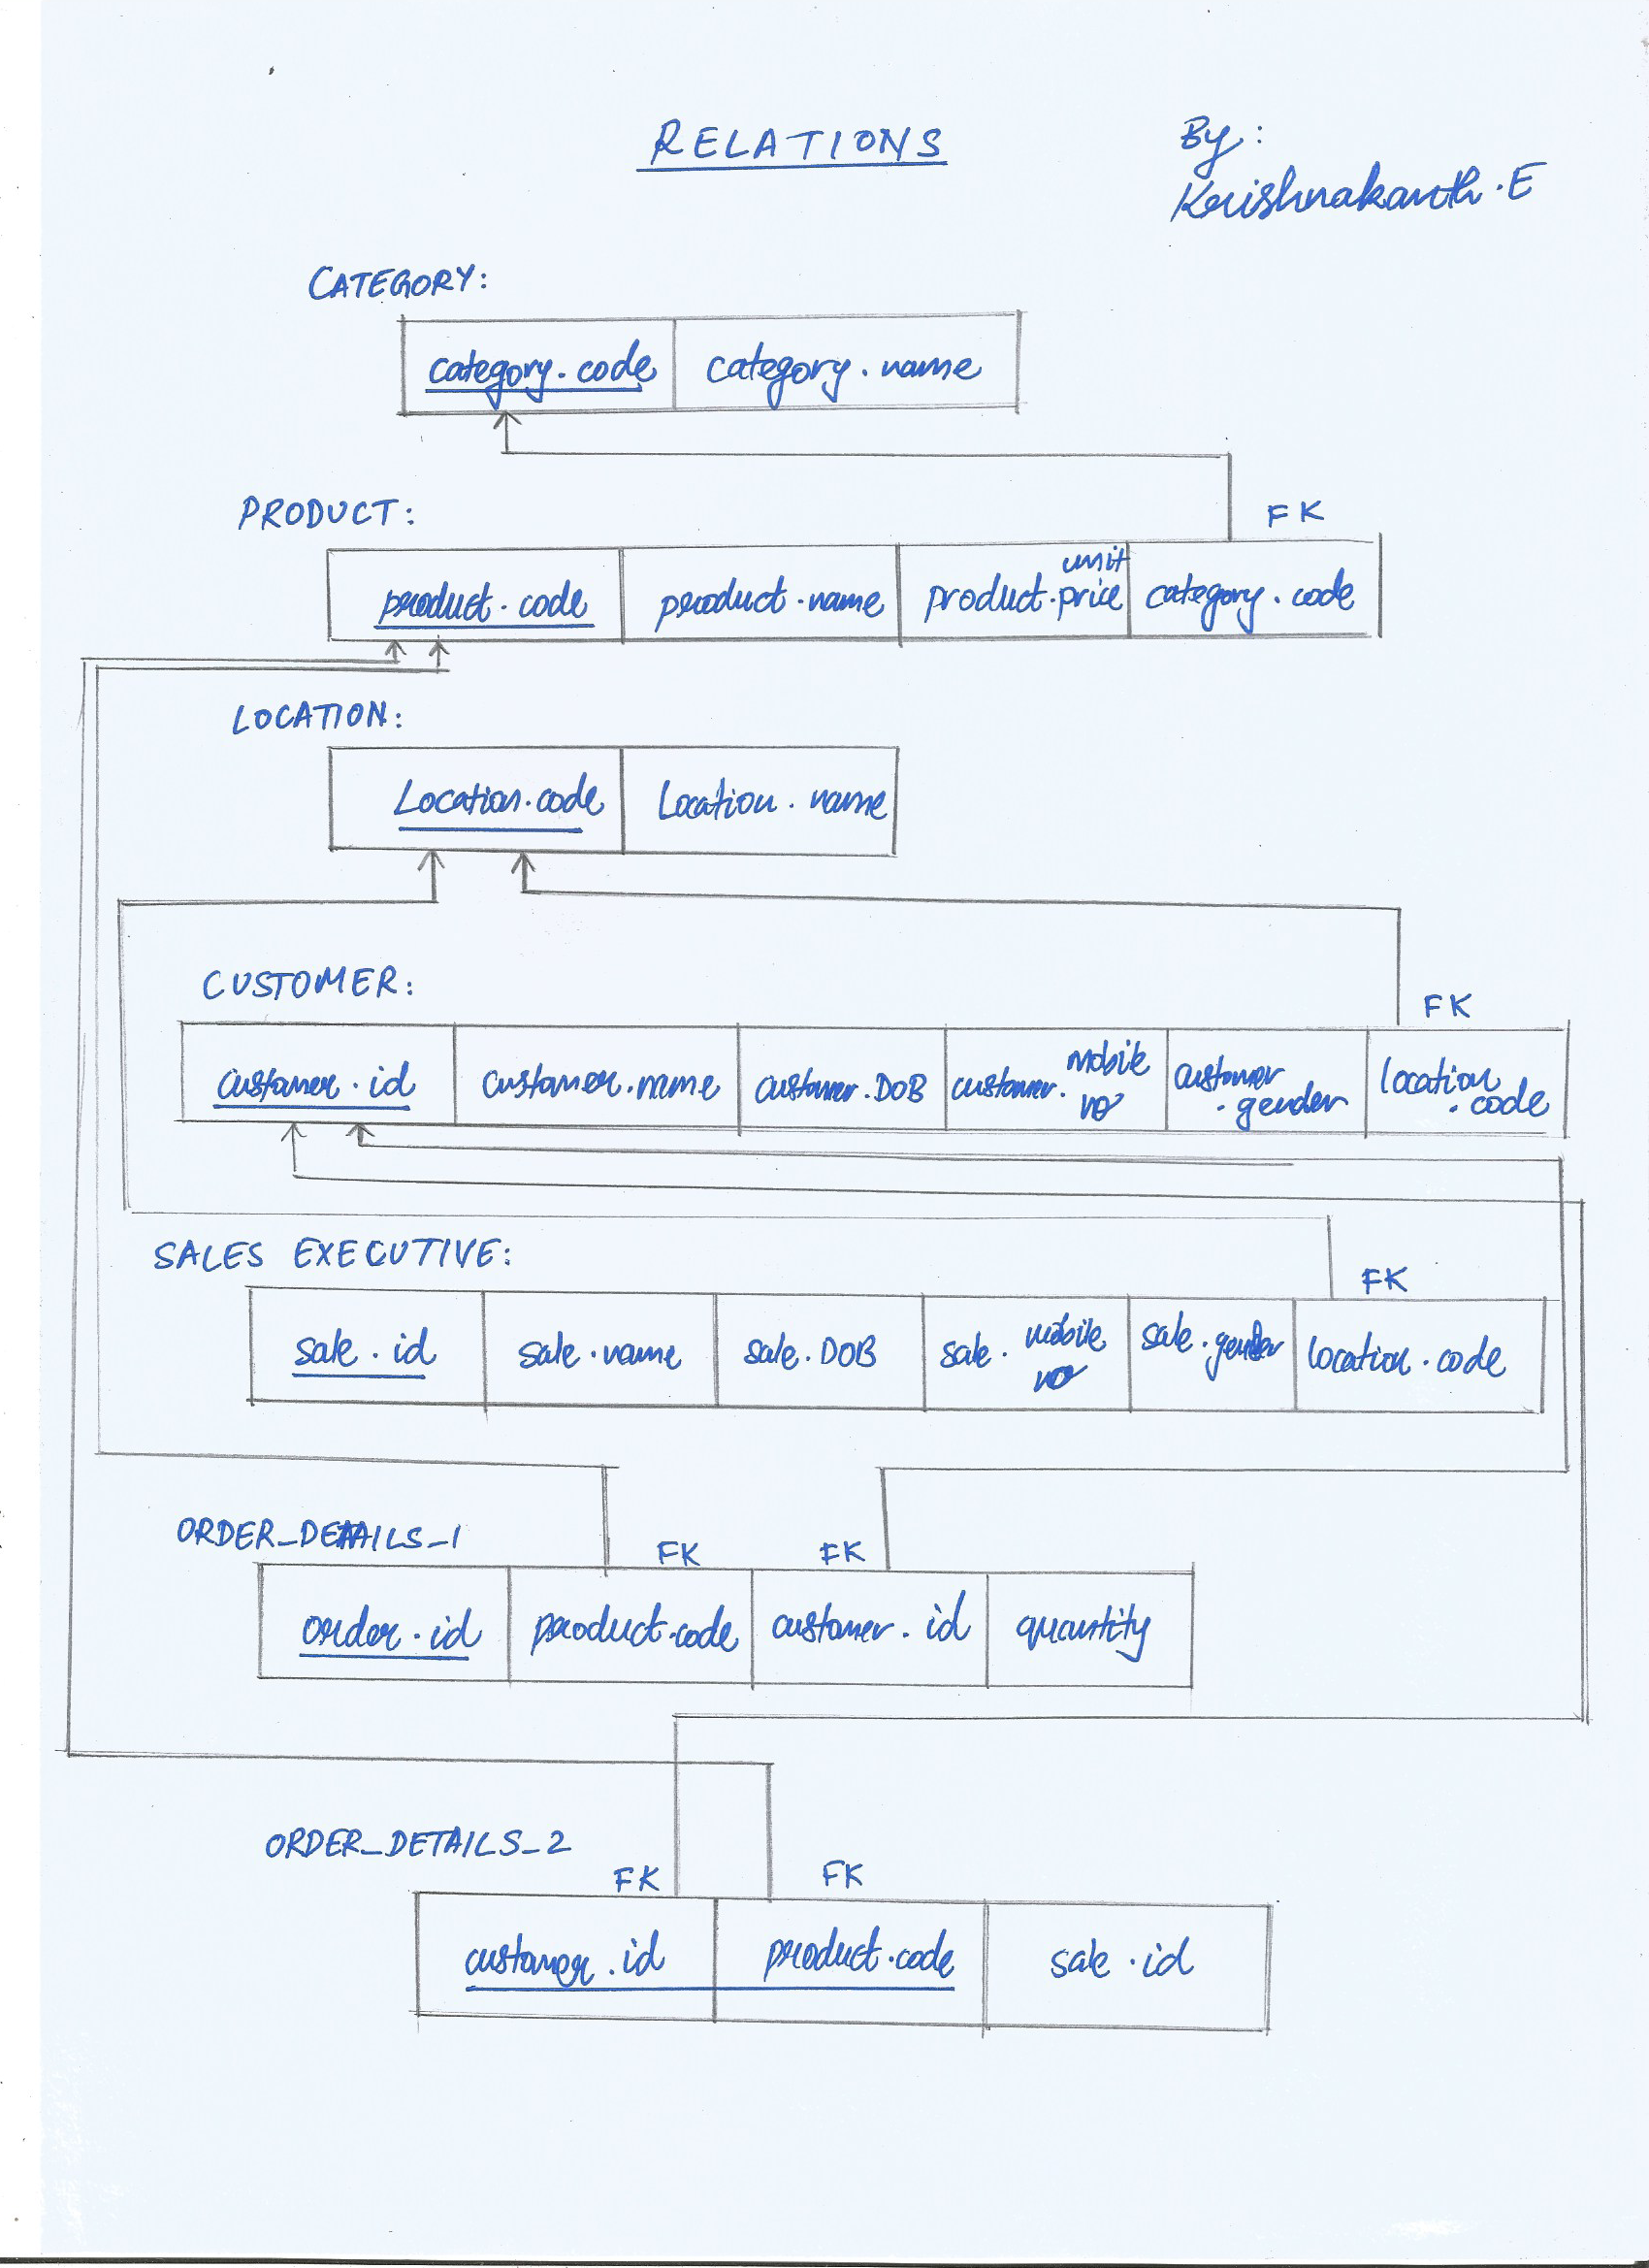 RELATIONS
By:
Krishnakanth.E
CATEGORY:
category.code category.name
PRODUCT: FK
product.code product.name product.unit price category.code
LOCATION:
Location.code Location.name
CUSTOMER: FK
customer.id customer.name customer.DOB customer.mobile no customer.gender location.code
SALES EXECUTIVE: FK
sale.id sale.name sale.DOB sale.mobile no sale.gender location.code
ORDER_DETAILS_1 FK FK
order.id product.code customer.id quantity
ORDER_DETAILS_2
FK FK
customer.id product.code sale.id